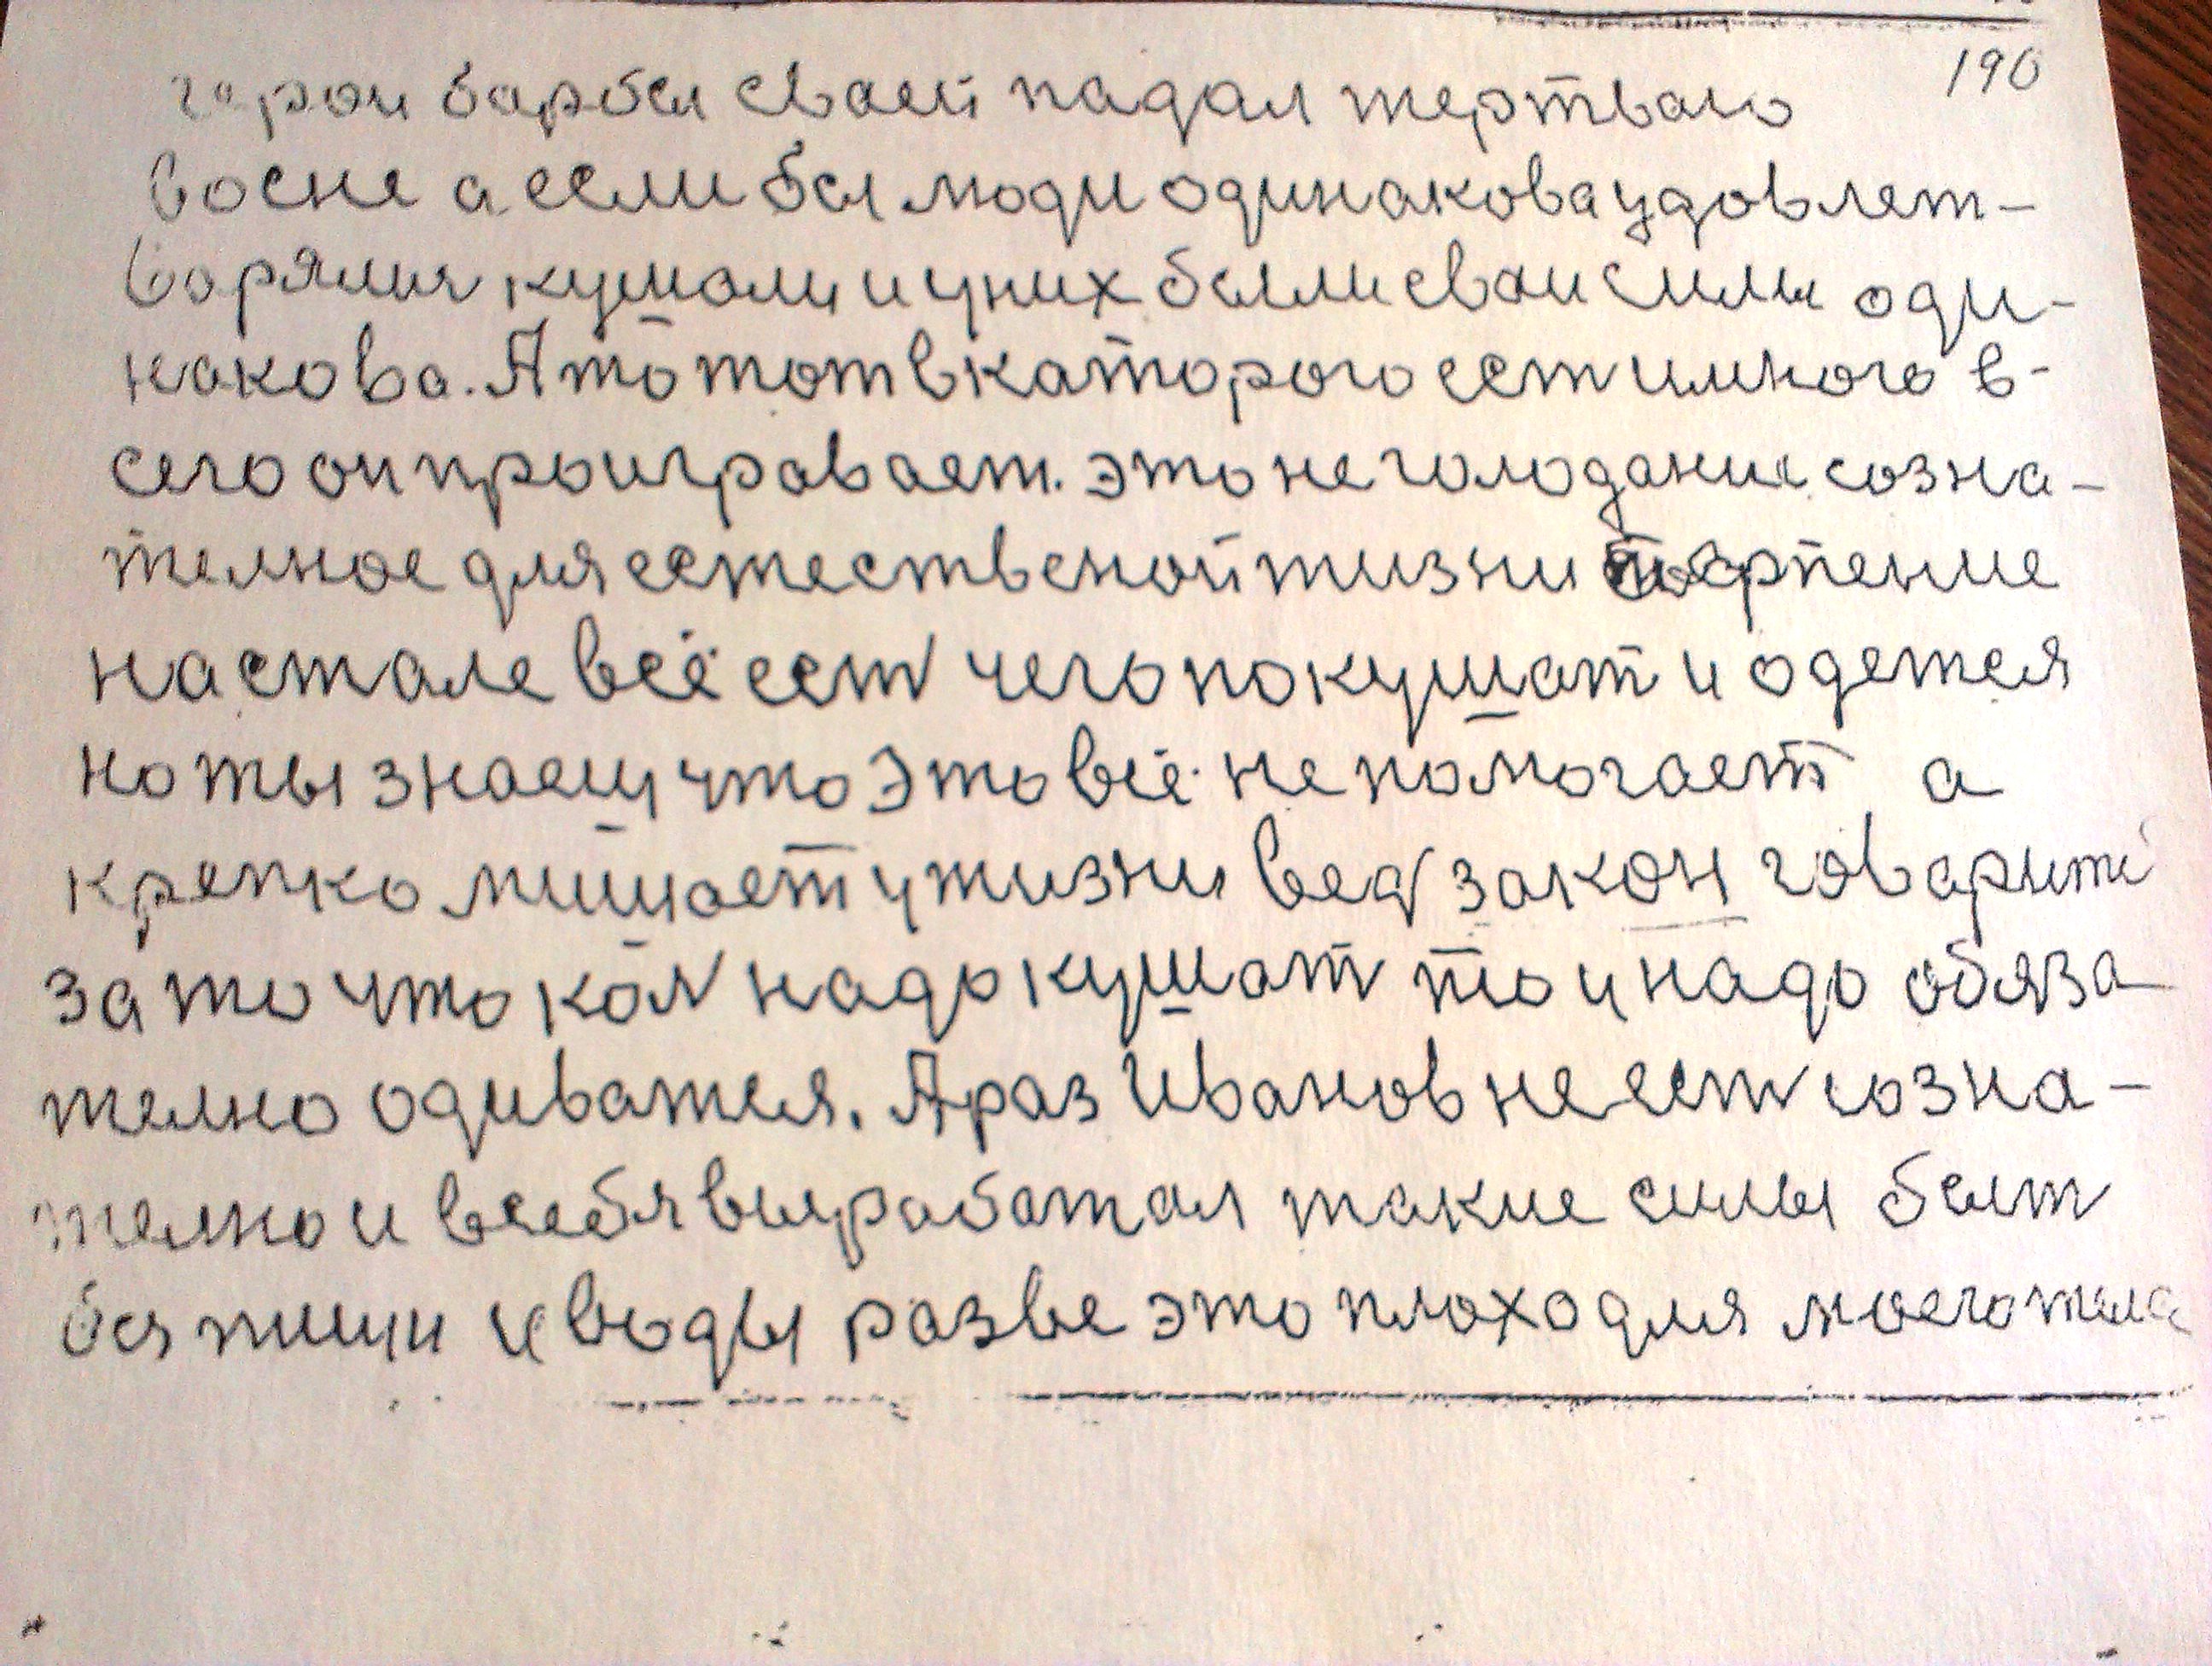 190
герои барбы сваей падал жертваю
восне а если бы люди одинакова удовлет-
ворялия кушали и у них были сваи силы оди-
накова. А то тот в каторого ест и много в-
сего он проигравает. это не голодание созна-
телное для естественой жизни терпение
на стале всё ест чего покушат и одется
но ты знаеш что это всё не помогает а
крепко мишает у жизни вед закон говарит
за то что кол надо кушат то и надо обяза
телно одиватся. А раз Иванов не ест созна-
телно и в себя вырабатал такие силы быт
без пищи и воды разве это плохо для моего тела